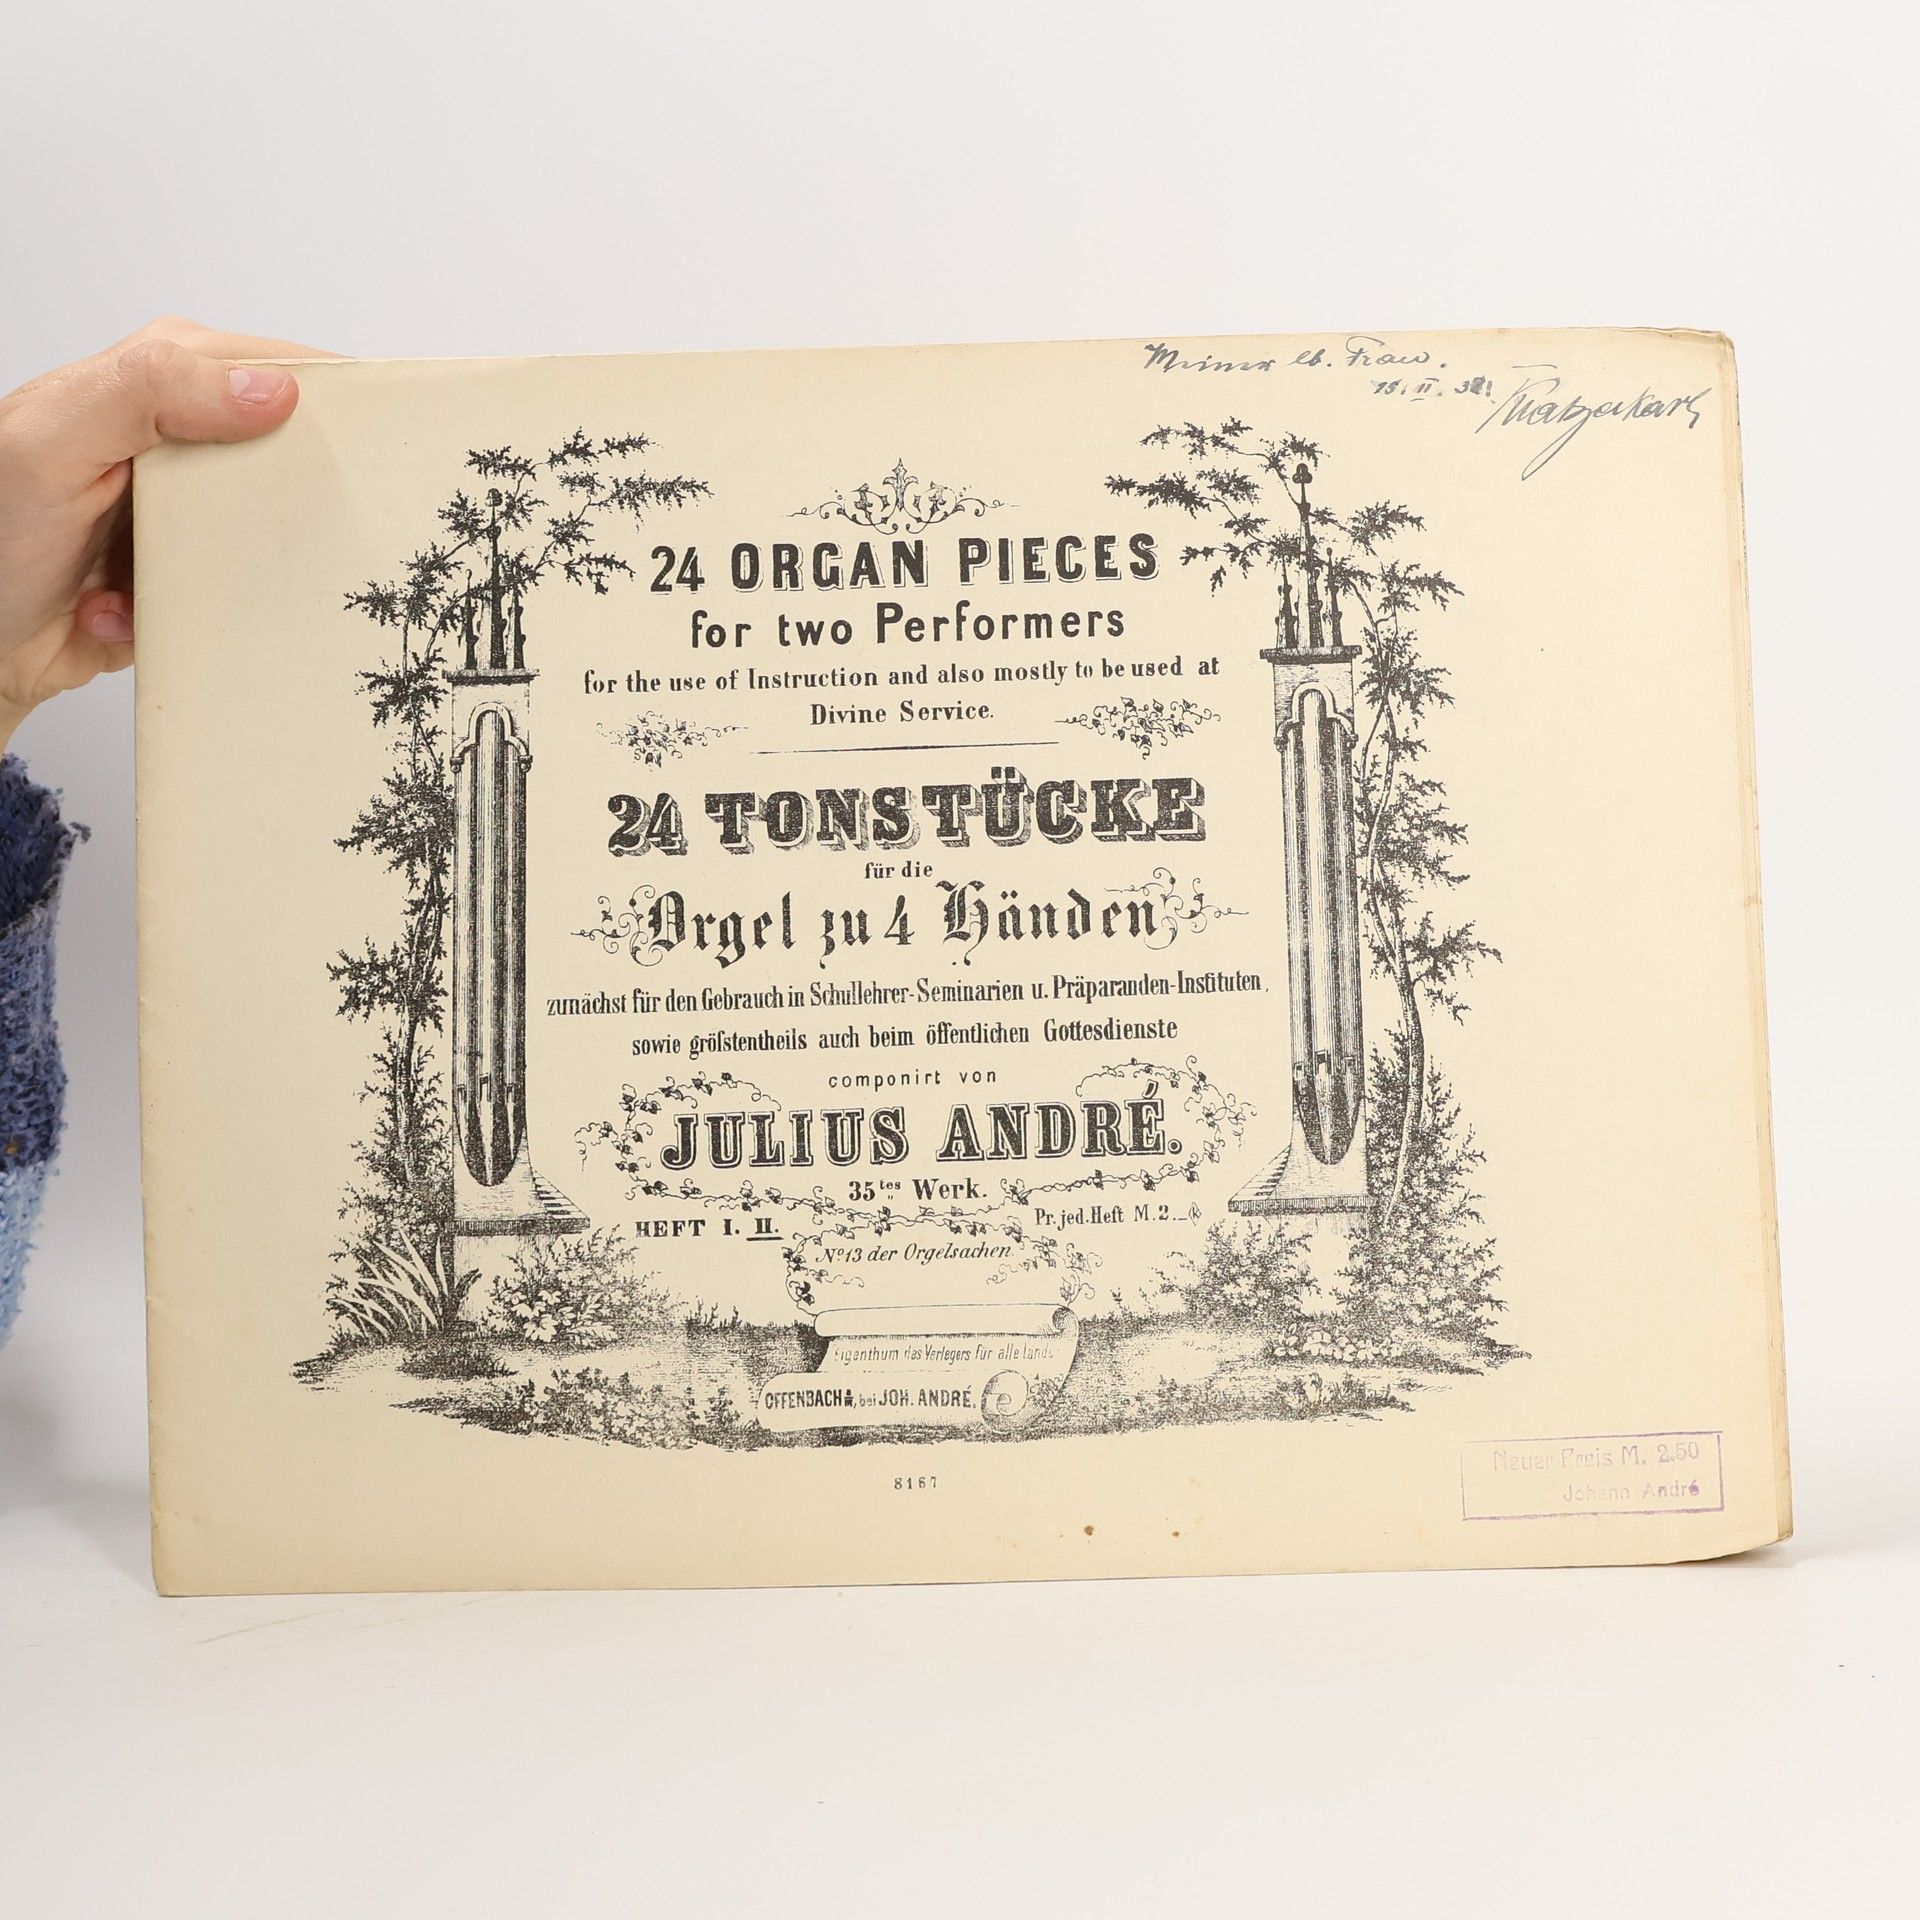 Meiner lb. Frau.
15. II. 32!
24 ORGAN PIECES
for two Performers
for the use of Instruction and also mostly to be used at
Divine Service.
24 TONSTÜCKE
für die
Orgel zu 4 Händen
zunächst für den Gebrauch in Schullehrer-Seminarien u. Präparanden-Instituten,
sowie gröſstentheils auch beim öffentlichen Gottesdienste
componirt von
JULIUS ANDRÉ.
35tes Werk.
HEFT I. II.
Pr. jed. Heft M. 2._
No 13 der Orgelsachen
Eigenthum des Verlegers für alle
OFFENBACH a/M, bei JOH. ANDRÉ.
8167
Neuer Preis M. 2.50
Johann André